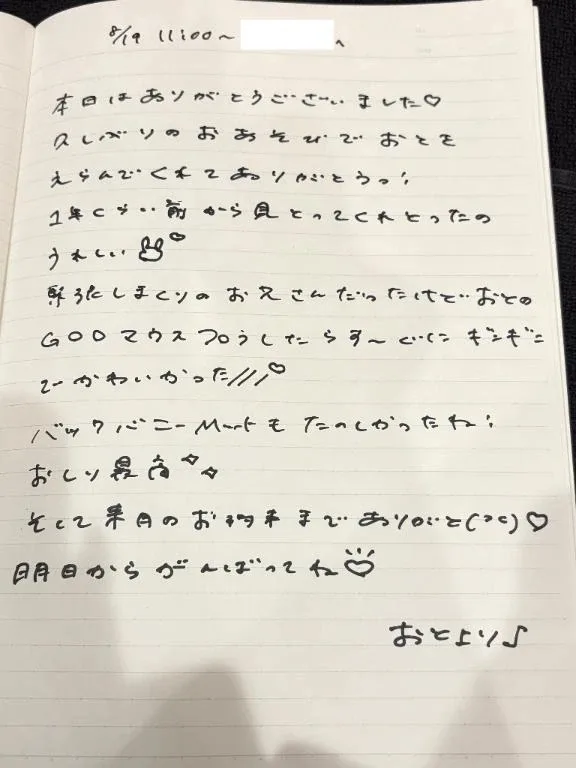 8/19 11:00〜 へ
本日はありがとうございました♡
久しぶりのおあそびでおとを
えらんでくれてありがとうっ!
1年くらい前から見とってくれとったの
うれしい♡
緊張しまくりのお兄さんだったけどおとの
GODマウスフロうしたらす〜ぐにギンギン
でかわいかった///♡
バックバニーMartもたのしかったね!
おしり最高✧✧
そして来月のお約束まであありがと(^^)♡
明日からがんばってね♡
おとより♪